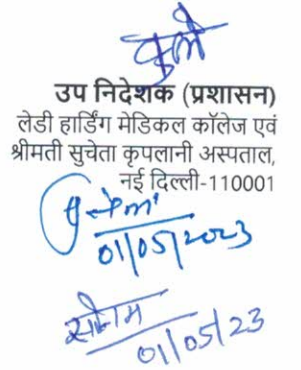 उप निदेशक (प्रशासन)
लेडी हार्डिंग मेडिकल कॉलेज एवं
श्रीमती सुचेता कृपलानी अस्पताल,
नई दिल्ली-110001
01/05/2023
सोनम
01/05/23